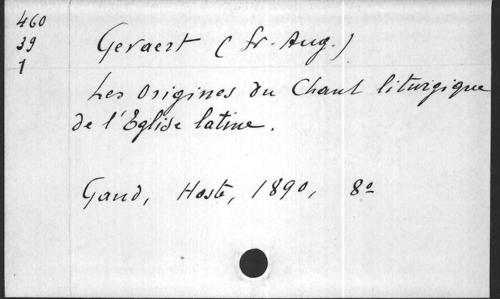 460
39
1
Gevaert (fr. Aug.)
Les Origines du Chant liturgique
de l'Eglise latine.
Gand, Hoste, 1890, 8º